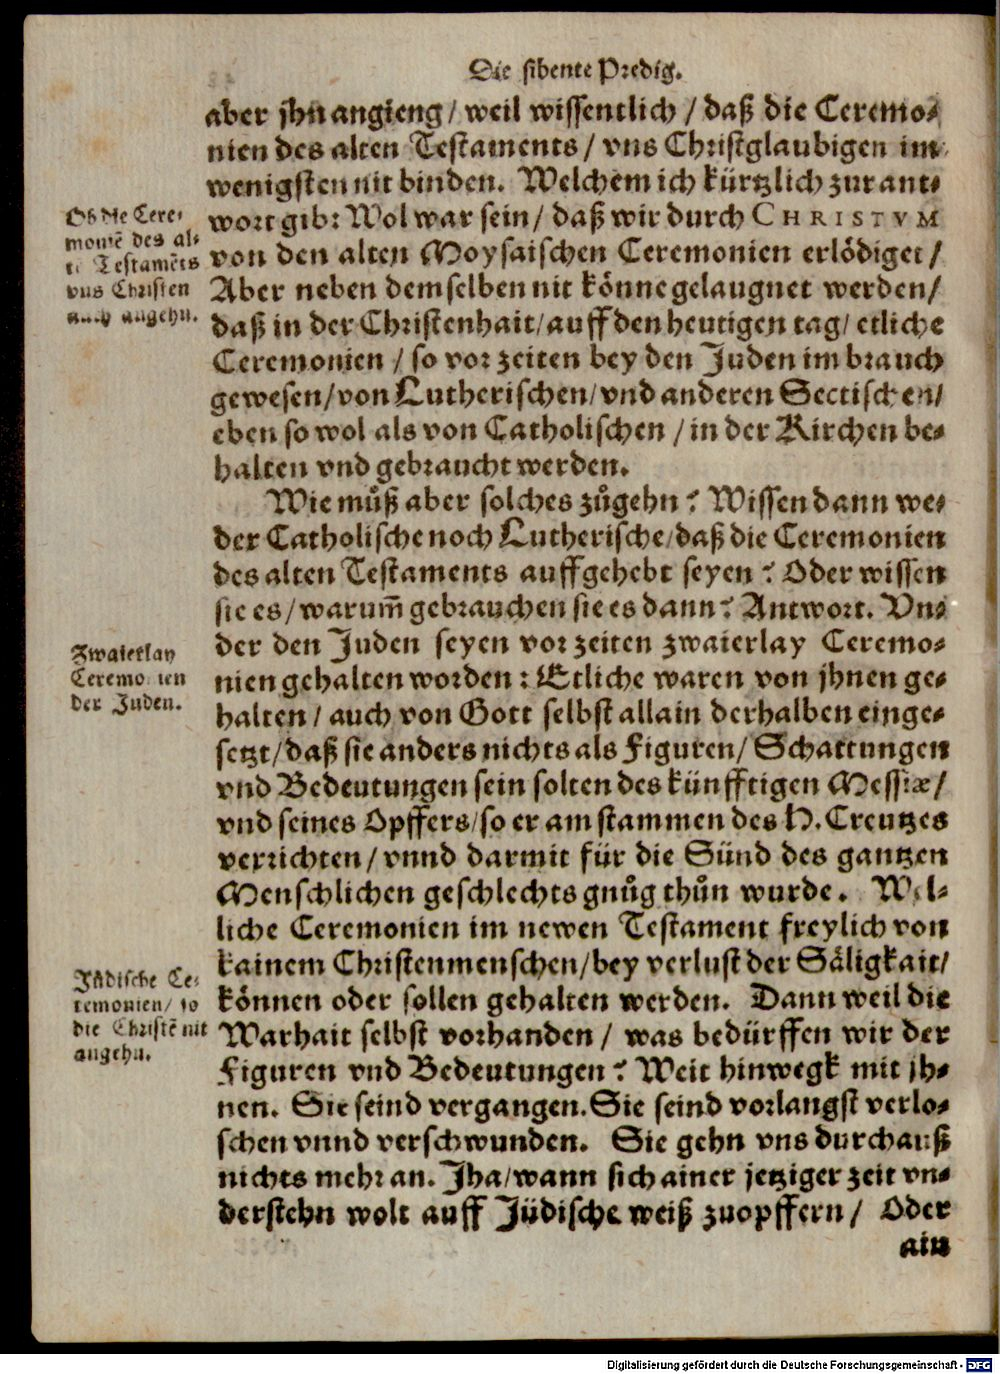 Die sibente Predig.
aber jhn angieng/ weil wissentlich / daß die Ceremo-
nien des alten Testaments/ vns Christglaubigen im
wenigsten nit binden. Welchem ich kürtzlich zur ant-
wort gib: Wol war sein/ daß wir durch CHRISTVM
von den alten Moysaischen Ceremonien erlödiget/
Aber neben demselben nit könne gelaugnet werden/
daß in der Christenhait/auff den heutigen tag/ etliche
Ceremonien / so vor zeiten bey den Juden im brauch
gewesen/von Lutherischen/vnd anderen Sectischen/
eben so wol als von Catholischen / in der Kirchen be-
halten vnd gebraucht werden.
Ob die Cere-
moniẽ des al-
tẽ Testamẽts
vns Christen
auch angehn.
Wie muͦß aber solches zuͦgehn? Wissen dann we-
der Catholische noch Lutherische/daß die Ceremonien
des alten Testaments auffgehebt seyen? Oder wissen
sie es/warum̃ gebrauchen sie es dann? Antwort. Vn-
der den Juden seyen vor zeiten zwaierlay Ceremo-
nien gehalten worden: Etliche waren von jhnen ge-
halten / auch von Gott selbst allain derhalben einge-
setzt/daß sie anders nichts als Figuren/ Schattungen
vnd Bedeutungen sein solten des künfftigen Messiæ/
vnd seines Opffers/so er am stammen des H. Creutzes
verrichten/vnnd darmit für die Sünd des gantzen
Menschlichen geschlechts gnuͦg thuͦn wurde. Wel-
liche Ceremonien im newen Testament freylich von
kainem Christenmenschen/bey verlust der Säligkait/
können oder sollen gehalten werden. Dann weil die
Warhait selbst vorhanden / was bedürffen wir der
Figuren vnd Bedeutungen? Weit hinwegk mit jh-
nen. Sie seind vergangen. Sie seind vorlangst verlo-
schen vnnd verschwunden. Sie gehn vns durchauß
nichts mehr an. Jha/wann sich ainer jetziger zeit vn-
derstehn wolt auff Jüdische weiß zuopffern/ Oder
ain
Zwaierlay
Ceremonien
der Juden.
Jüdische Ce-
remonien/ so
die Christẽ nit
angehn.
Digitalisierung gefördert durch die Deutsche Forschungsgemeinschaft - DFG